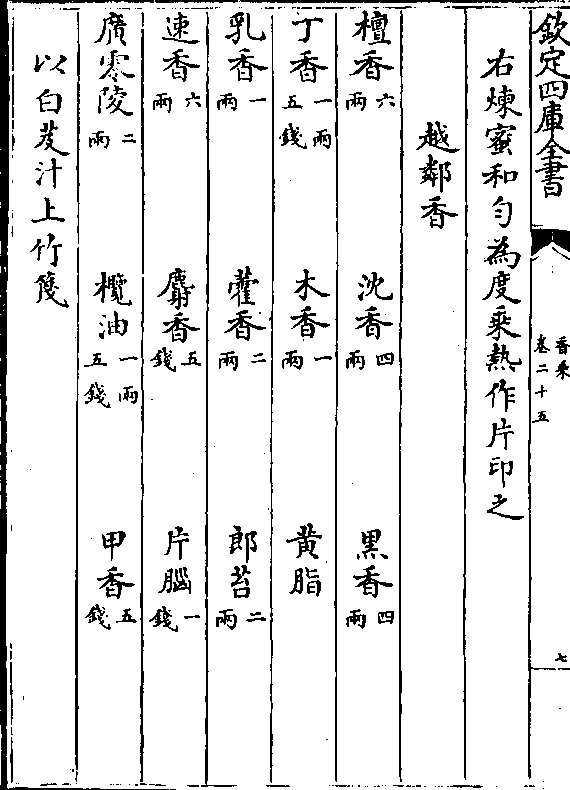 欽定四庫全書
香乘
卷二十五
七
右煉蜜和勻為度乘熱作片印之
越鄰香
檀香六兩 沈香四兩 黑香四兩
丁香一兩五錢 木香一兩 黃脂
乳香一兩 藿香二兩 郎苔二兩
速香六兩 麝香五錢 片腦一錢
廣零陵二兩 欖油一兩五錢 甲香五錢
以白芨汁上竹篾